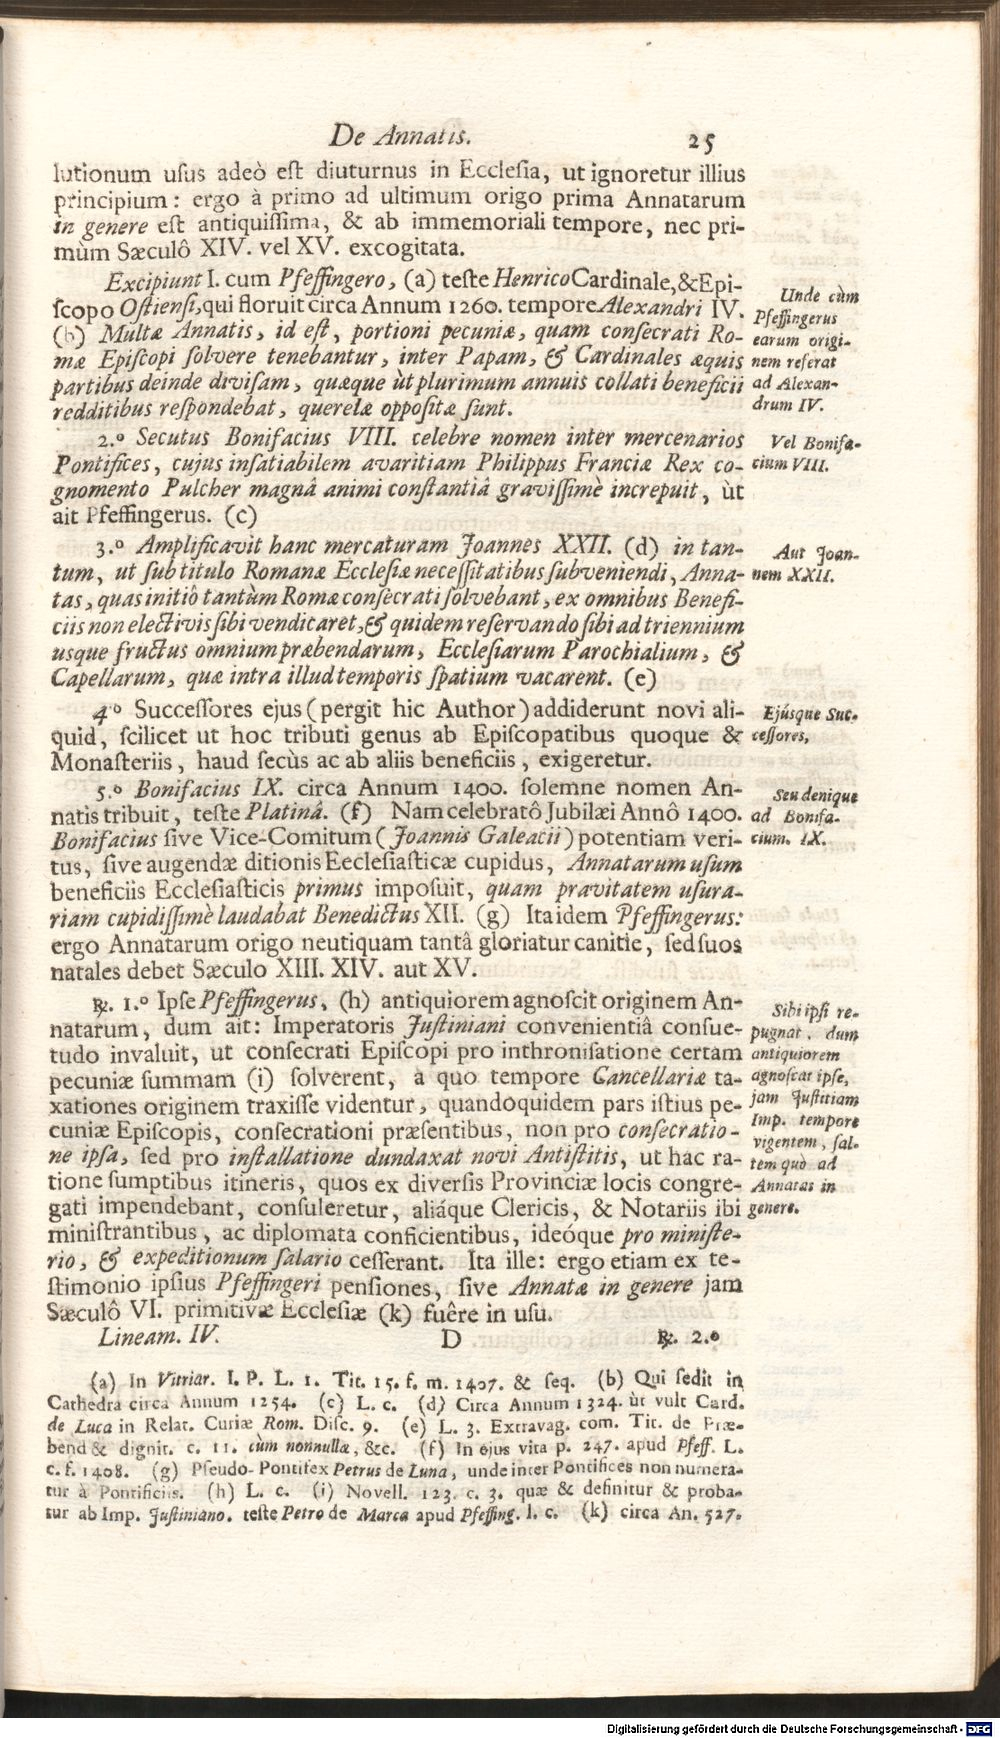 De Annatis. 25
lutionum usus adeò est diuturnus in Ecclesia, ut ignoretur illius
principium: ergo à primo ad ultimum origo prima Annatarum
in genere est antiquissima, & ab immemoriali tempore, nec pri-
mùm Sæculô XIV. vel XV. excogitata.
Excipiunt I. cum Pfeffingero, (a) teste Henrico Cardinale, & Epi-
scopo Ostiensi, qui floruit circa Annum 1260. tempore Alexandri IV.
(b) Multæ Annatis, id est, portioni pecuniæ, quam consecrati Ro-
mæ Episcopi solvere tenebantur, inter Papam, & Cardinales æquis
partibus deinde divisam, quæque ùt plurimum annuis collati beneficii
redditibus respondebat, querelæ oppositæ sunt.
Unde cùm
Pfeffingerus
earum origi-
nem referat
ad Alexan-
drum IV.
2.º Secutus Bonifacius VIII. celebre nomen inter mercenarios
Pontifices, cujus insatiabilem avaritiam Philippus Franciæ Rex co-
gnomento Pulcher magnâ animi constantiâ gravissimè increpuit, ùt
ait Pfeffingerus. (c)
Vel Bonifa-
cium VIII.
3.º Amplificavit hanc mercaturam Joannes XXII. (d) in tan-
tum, ut sub titulo Romanæ Ecclesiæ necessitatibus subveniendi, Anna-
tas, quas initiô tantùm Romæ consecrati solvebant, ex omnibus Benefi-
ciis non electivis sibi vendicaret, & quidem reservando sibi ad triennium
usque fructus omnium præbendarum, Ecclesiarum Parochialium, &
Capellarum, quæ intra illud temporis spatium vacarent. (e)
Aut Joan-
nem XXII.
4º Successores ejus (pergit hic Author) addiderunt novi ali-
quid, scilicet ut hoc tributi genus ab Episcopatibus quoque &
Monasteriis, haud secùs ac ab aliis beneficiis, exigeretur.
Ejúsque Suc-
cessores,
5.º Bonifacius IX. circa Annum 1400. solemne nomen An-
natis tribuit, teste Platinâ. (f) Nam celebratô Jubilæi Annô 1400.
Bonifacius sive Vice-Comitum (Joannis Galeacii) potentiam veri-
tus, sive augendæ ditionis Ecclesiasticæ cupidus, Annatarum usum
beneficiis Ecclesiasticis primus imposuit, quam pravitatem usura-
riam cupidissimè laudabat Benedictus XII. (g) Ita idem Pfeffingerus:
ergo Annatarum origo neutiquam tantâ gloriatur canitie, sed suos
natales debet Sæculo XIII. XIV. aut XV.
Seu denique
ad Bonifa-
cium. IX.
℞. 1.º Ipse Pfeffingerus, (h) antiquiorem agnoscit originem An-
natarum, dum ait: Imperatoris Justiniani convenientiâ consue-
tudo invaluit, ut consecrati Episcopi pro inthronisatione certam
pecuniæ summam (i) solverent, a quo tempore Cancellariæ ta-
xationes originem traxisse videntur, quandoquidem pars istius pe-
cuniæ Episcopis, consecrationi præsentibus, non pro consecratio-
ne ipsa, sed pro installatione dundaxat novi Antistitis, ut hac ra-
tione sumptibus itineris, quos ex diversis Provinciæ locis congre-
gati impendebant, consuleretur, aliáque Clericis, & Notariis ibi
ministrantibus, ac diplomata conficientibus, ideóque pro ministe-
rio, & expeditionum salario cesserant. Ita ille: ergo etiam ex te-
stimonio ipsius Pfeffingeri pensiones, sive Annatæ in genere jam
Sæculô VI. primitivæ Ecclesiæ (k) fuêre in usu.
Sibi ipsi re-
pugnat, dum
antiquiorem
agnoscat ipse,
jam Justitiam
Imp. tempore
vigentem, sal-
tem quò ad
Annatas in
genere.
Lineam. IV. D ℞. 2.º
(a) In Vitriar. I. P. L. 1. Tit. 15. f. m. 1407. & seq. (b) Qui sedit in
Cathedra circa Annum 1254. (c) L. c. (d) Circa Annum 1324. ùt vult Card.
de Luca in Relat. Curiæ Rom. Disc. 9. (e) L. 3. Extravag. com. Tit. de Præ-
bend & dignit. c. 11. cùm nonnullæ, &c. (f) In ejus vita p. 247. apud Pfeff. L.
c. f. 1408. (g) Pseudo-Pontifex Petrus de Luna, unde inter Pontifices non numera-
tur à Pontificiis. (h) L. c. (i) Novell. 123. c. 3. quæ & definitur & proba-
tur ab Imp. Justiniano. teste Petro de Marca apud Pfeffing. l. c. (k) circa An. 527.
Digitalisierung gefördert durch die Deutsche Forschungsgemeinschaft - DFG